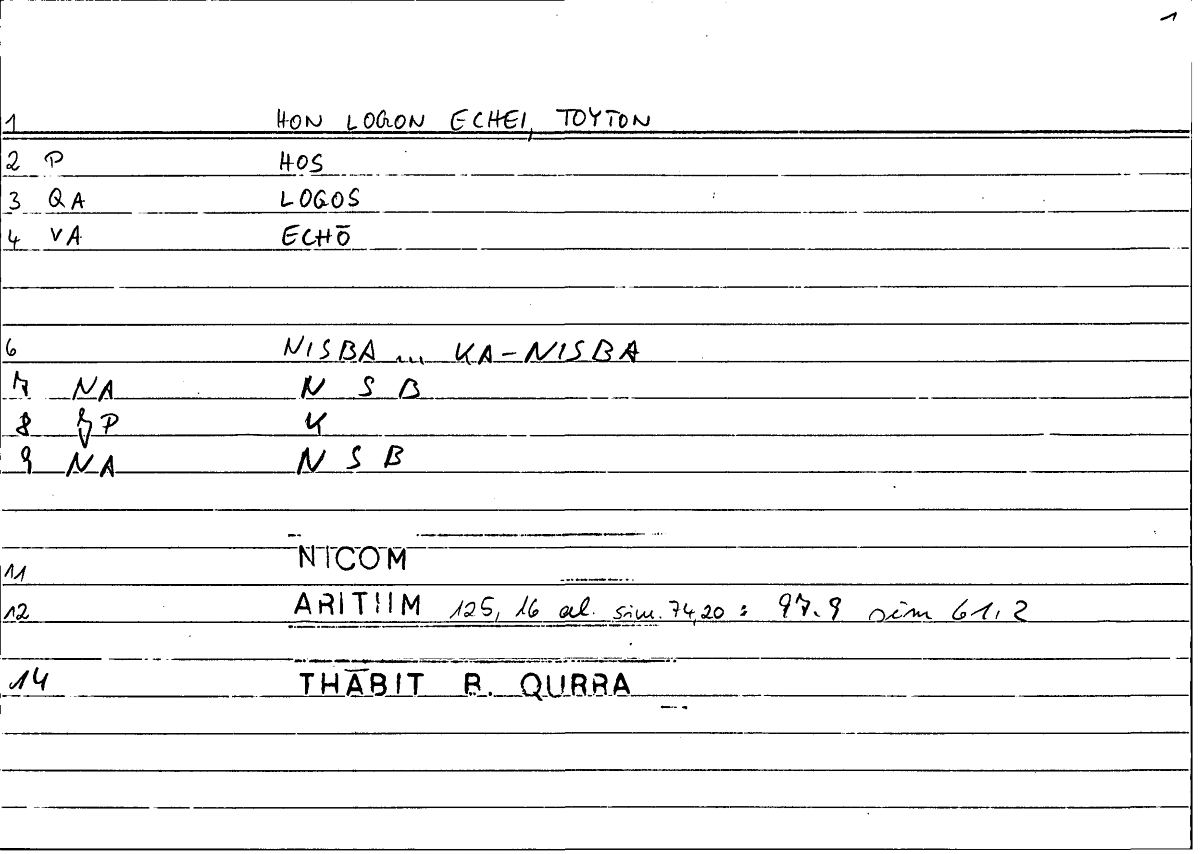 1
1 HON LOGON ECHEI, TOYTON
2 P HOS
3 QA LOGOS
4 VA ECHŌ
6 NISBA ... KA-NISBA
7 NA N S B
8 P K
9 NA N S B
11 NICOM
12 ARITHM 125, 16 al. sim. 74,20 : 97.9 sim 61,2
14 THĀBIT B. QURRA